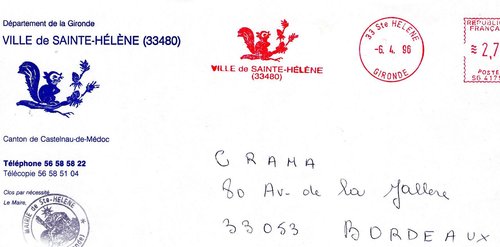 Département de la Gironde
VILLE de SAINTE-HÉLÈNE (33480)
Canton de Castelnau-de-Médoc
Téléphone 56 58 58 22
Télécopie 56 58 51 04
Clos par nécessité
Le Maire,
MAIRIE de Ste-HELENE
VILLE de SAINTE-HÉLÈNE
(33480)
33 Ste HELENE
-6. 4. 96
GIRONDE
REPUBLIQ
FRANÇA
2,7
POSTE
SG 4171
CRAMA
80 Av. de la Jallere
33053 BORDEAUX